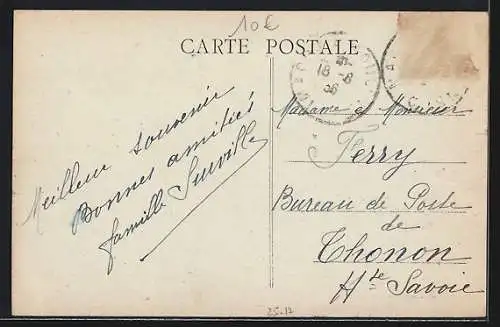 10€
CARTE POSTALE
18 -8
36
Meilleur souvenir
Bonnes amitiés
famille Surville
Madame et Monsieur
Ferry
Bureau de Poste
de
Thonon
Hte Savoie
25-12